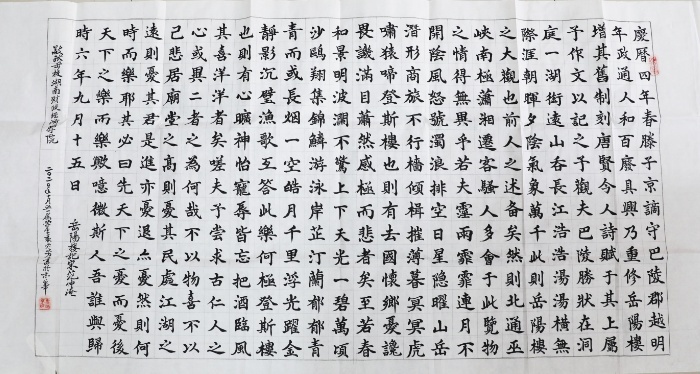 慶曆四年春滕子京謫守巴陵郡越明
年政通人和百廢具興乃重修岳陽樓
增其舊制刻唐賢今人詩賦于其上屬
予作文以記之予觀夫巴陵勝狀在洞
庭一湖銜遠山吞長江浩浩湯湯橫無
際涯朝暉夕陰氣象萬千此則岳陽樓
之大觀也前人之述备矣然則北通巫
峽南極瀟湘遷客騷人多會于此覽物
之情得無異乎若夫霪雨霏霏連月不
開陰風怒號濁浪排空日星隱曜山岳
潛形商旅不行檣傾楫摧薄暮冥冥虎
嘯猿啼登斯樓也則有去國懷鄉憂讒
畏譏滿目蕭然感極而悲者矣至若春
和景明波瀾不驚上下天光一碧萬頃
沙鷗翔集錦鱗游泳岸芷汀蘭郁郁青
青而或長煙一空皓月千里浮光躍金
靜影沉璧漁歌互答此樂何極登斯樓
也則有心曠神怡寵辱皆忘把酒臨風
其喜洋洋者矣嗟夫予嘗求古仁人之
心或異二者之為何哉不以物喜不以
己悲居廟堂之高則憂其民處江湖之
遠則憂其君是進亦憂退亦憂然則何
時而樂耶其必曰先天下之憂而憂後
天下之樂而樂歟噫微斯人吾誰與歸
時六年九月十五日
岳陽樓記
湖南財政經濟學院